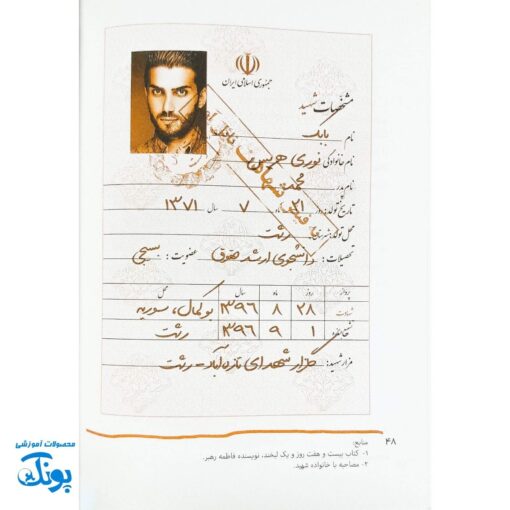 جمهوری اسلامی ایران
مشخصات شهید
نام بابک
نام خانوادگی نوری هریس
نام پدر محمد
تاریخ تولد: روز ۲۱ ماه ۷ سال ۱۳۷۱
محل تولد: شهرستان رشت
تحصیلات: دانشجوی ارشد حقوق عضویت: بسیجی
پرواز روز ماه سال محل
شهادت ۲۸ ۸ ۱۳۹۶ بوکمال، سوریه
۱ ۹ ۱۳۹۶ رشت
مزار شهید: گلزار شهدای تازه‌آباد - رشت
۴۸
منابع:
۱- کتاب بیست و هفت روز و یک لبخند، نویسنده فاطمه رهبر.
۲- مصاحبه با خانواده شهید.
محصولات آموزشی
پونک